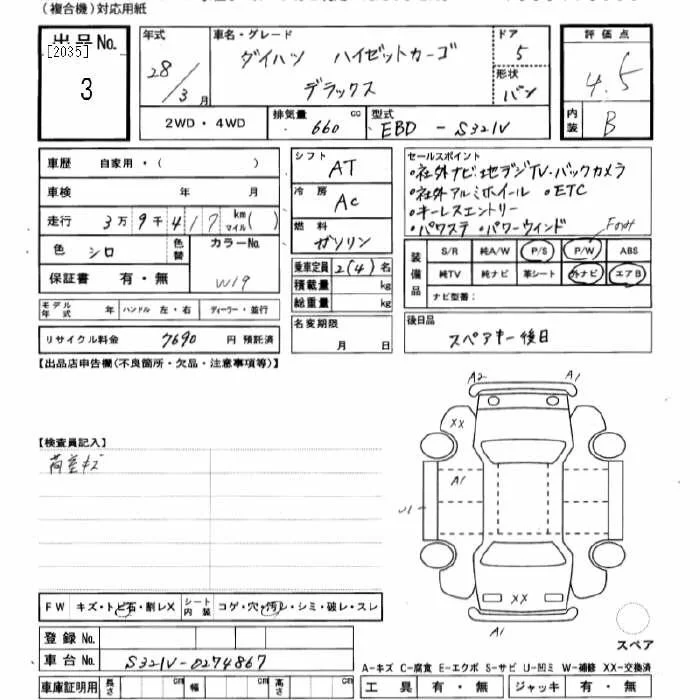 (複合機)対応用紙
出品No.
[2035]
3
年式
28/3月
車名・グレード
ダイハツ ハイゼットカーゴ
デラックス
ドア
5
形状
バン
評価点
4.5
内装
B
2WD・4WD
排気量 660 cc
型式 EBD-S321V
車歴 自家用・( )
車検 年 月
走行 3万9千417 km マイル( )
色 シロ
色替
カラーNo.
W19
保証書 有・無
モデル年式 年 ハンドル 左・右 ディーラー・並行
リサイクル料金 7690 円 預託済
シフト
AT
冷房
AC
燃料
ガソリン
乗車定員 2(4)名
積載量 kg
総重量 kg
名変期限
月 日
セールスポイント
・社外ナビ・地デジTV・バックカメラ
・社外アルミホイール ・ETC
・キーレスエントリー
・パワステ ・パワーウィンド
装備品
S/R 純A/W P/S P/W ABS
純TV 純ナビ 革シート 外ナビ エアB
ナビ型番:
後日品
スペアキー後日
【出品店申告欄(不良箇所・欠品・注意事項等)】
【検査員記入】
荷室キズ
A2 A1
XX
A1
U1
XX
A1
スペア
FW キズ・トビ石・割レX シート内装 コゲ・穴・汚レ・シミ・破レ・スレ
登録No.
車台No. S321V-0274867
車庫証明用 長さ cm 幅 cm 高さ cm
A-キズ C-腐食 E-エクボ S-サビ U-凹ミ W-補修 XX-交換済
工具 有・無 ジャッキ 有・無